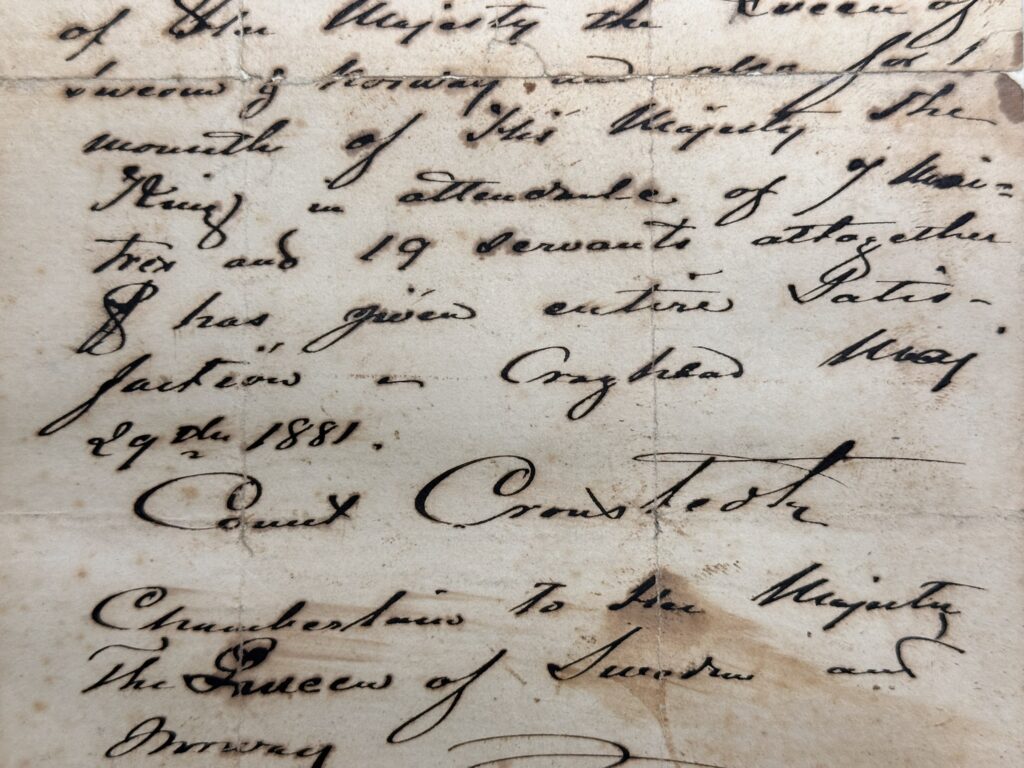 of Her Majesty the Queen of
Sweden & Norway and also for 1
mounth of His Majesty the
King in attendance of 7 Mai-
tres and 19 servants altogether
& has given entire Satis-
faction - Craghead May
29th 1881.
Count Cronstedt
Chamberlain to Her Majesty
The Queen of Sweden and
Norway